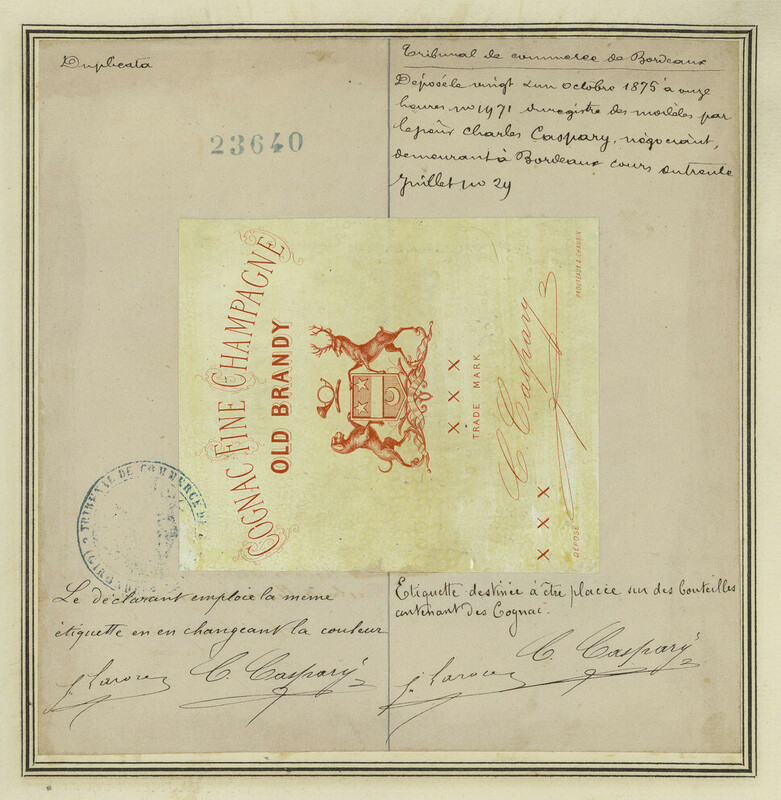 Duplicata
23640
Tribunal de commerce de Bordeaux
Déposé le vingt un octobre 1875 à onze
heures no 1971 du registre des modèles par
le sieur Charles Caspary, négociant,
demeurant à Bordeaux cours du trente
Juillet no 29
COGNAC FINE CHAMPAGNE
OLD BRANDY
X X X
TRADE MARK
C. Caspary
X X X
DÉPOSÉ
PROUTEAUX & CHAUVIN
TRIBUNAL DE COMMERCE DE
(GIRONDE)
Le déclarant emploie la même
étiquette en en changeant la couleur
C. Caspary
Etiquette destinée à être placée sur des bouteilles
contenant des Cognac.
C. Caspary